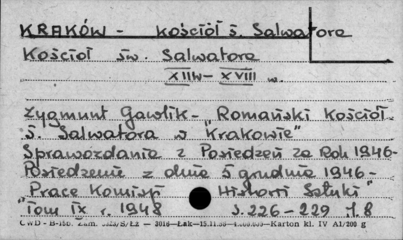 KRAKÓW - kościół ś. Salwatora
Kościół św. Salwatora
XIIw - XVIII w.
Zygmunt Gawlik - "Romański Kościół
ś. Salwatora w Krakowie"
Sprawozdania z Posiedzeń za Rok 1946-
Posiedzenie z dnia 5 grudnia 1946-
"Prace Komisji Historii Sztuki"
Tom IX r. 1948 s. 226-229 f. 8
Karton kl. IV A1/200 g